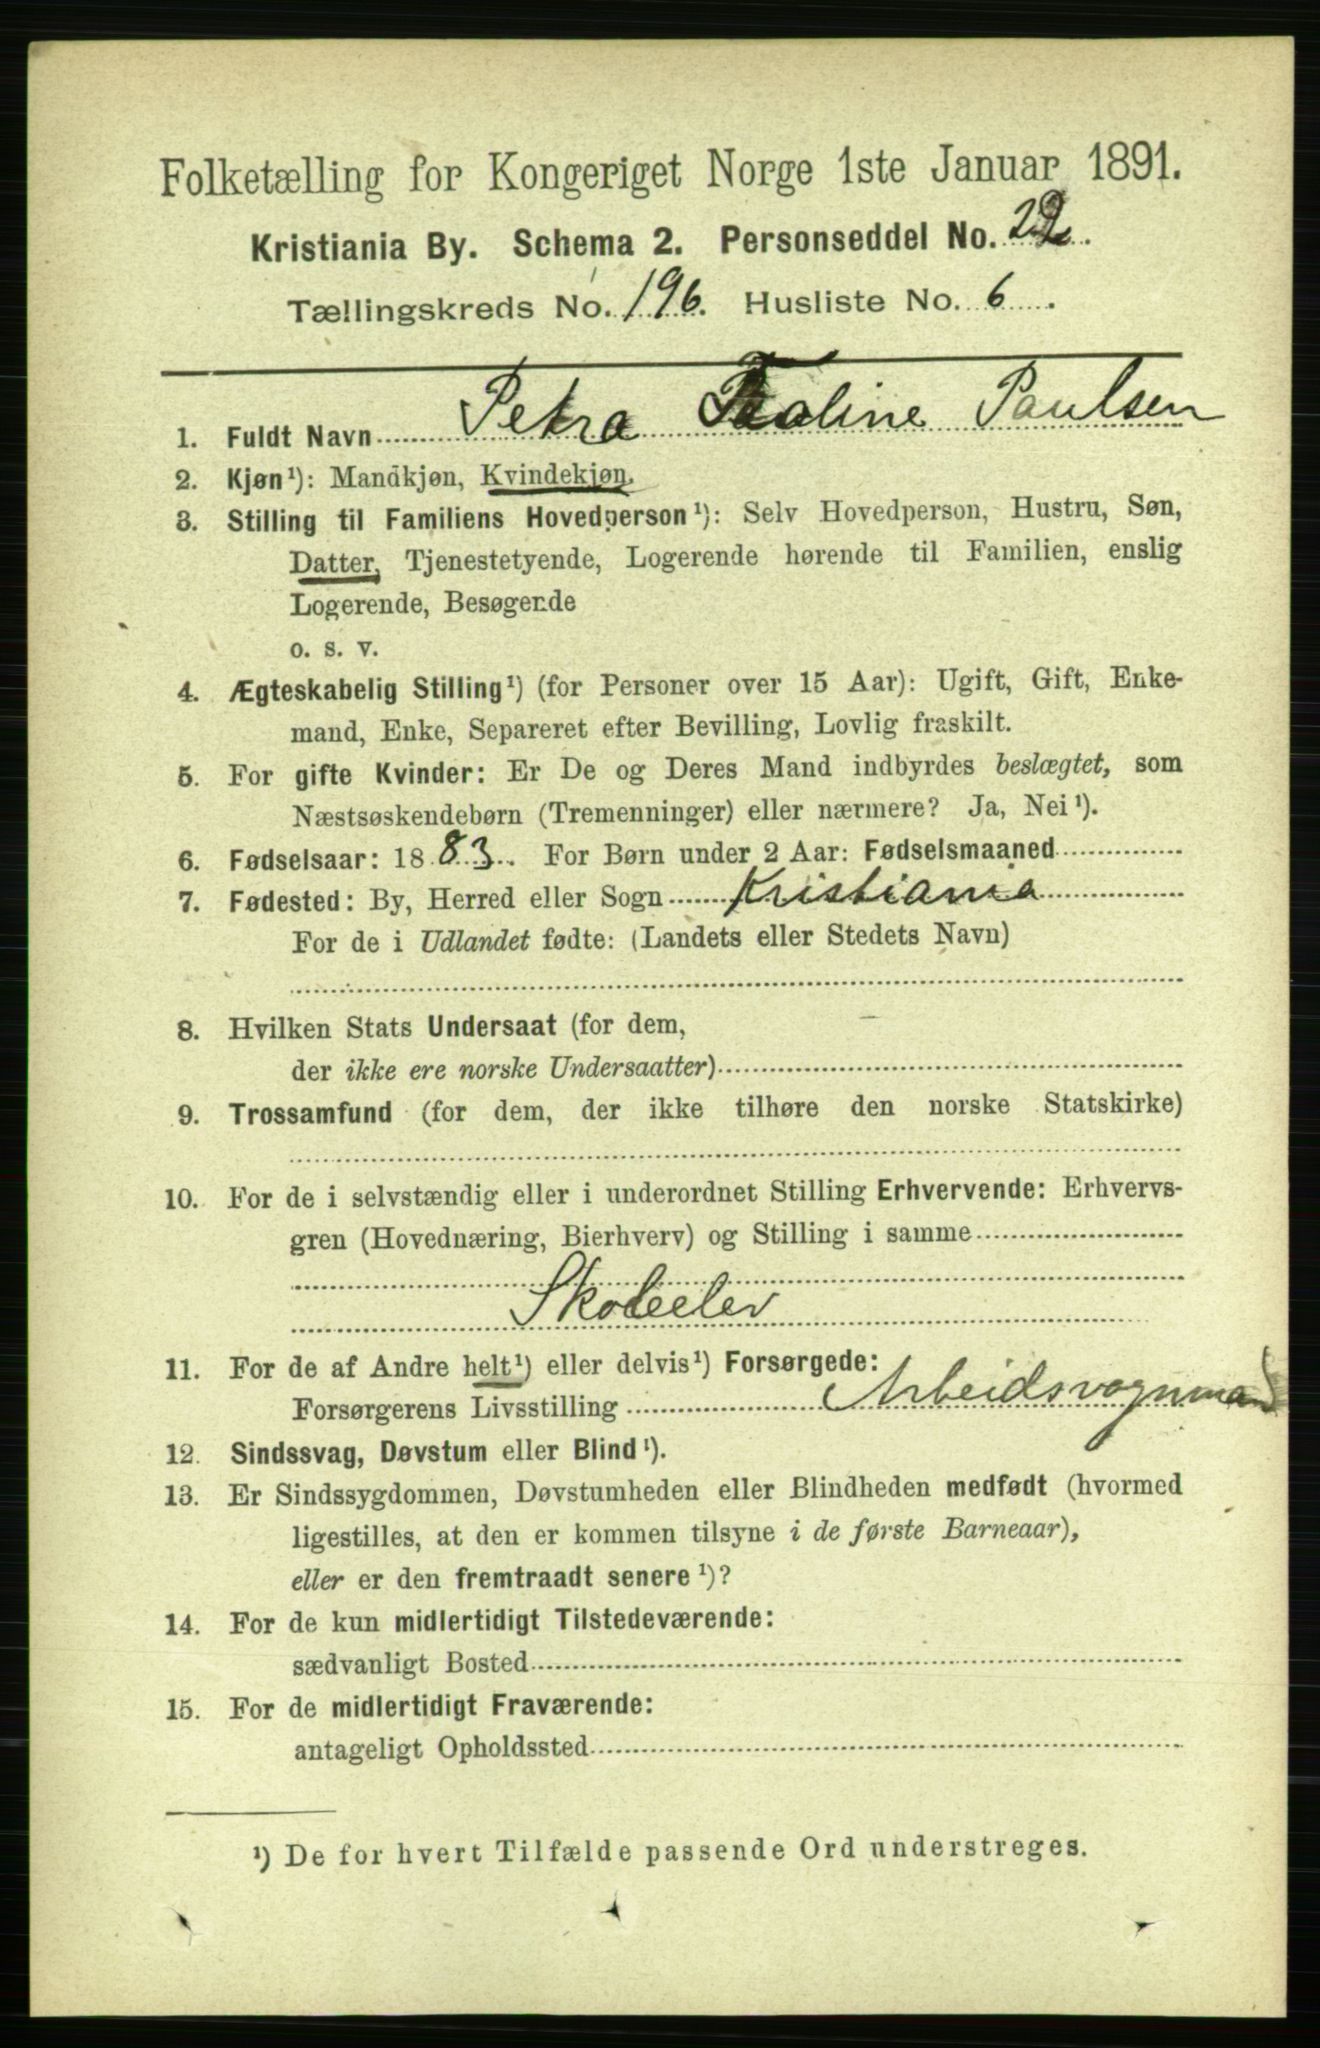 Folketælling for Kongeriget Norge 1ste Januar 1891.
Kristiania By. Schema 2. Personseddel No. 22.
Tællingskreds No. 196. Husliste No. 6.
1. Fuldt Navn Petra Paulsen
2. Kjøn¹): Mandkjøn, Kvindekjøn.
3. Stilling til Familiens Hovedperson¹): Selv Hovedperson, Hustru, Søn,
Datter, Tjenestetyende, Logerende hørende til Familien, enslig
Logerende, Besøgende
o. s. v.
4. Ægteskabelig Stilling¹) (for Personer over 15 Aar): Ugift, Gift, Enke-
mand, Enke, Separeret efter Bevilling, Lovlig fraskilt.
5. For gifte Kvinder: Er De og Deres Mand indbyrdes beslægtet, som
Næstsøskendebørn (Tremenninger) eller nærmere? Ja, Nei¹).
6. Fødselsaar: 1883. For Børn under 2 Aar: Fødselsmaaned
7. Fødested: By, Herred eller Sogn Kristiania
For de i Udlandet fødte: (Landets eller Stedets Navn)
8. Hvilken Stats Undersaat (for dem,
der ikke ere norske Undersaatter)
9. Trossamfund (for dem, der ikke tilhøre den norske Statskirke)
10. For de i selvstændig eller i underordnet Stilling Erhvervende: Erhvervs-
gren (Hovednæring, Bierhverv) og Stilling i samme
Skoleelev
11. For de af Andre helt¹) eller delvis¹) Forsørgede:
Forsørgerens Livsstilling Arbeidsvognmand
12. Sindssvag, Døvstum eller Blind¹).
13. Er Sindssygdommen, Døvstumheden eller Blindheden medfødt (hvormed
ligestilles, at den er kommen tilsyne i de første Barneaar),
eller er den fremtraadt senere¹)?
14. For de kun midlertidigt Tilstedeværende:
sædvanligt Bosted
15. For de midlertidigt Fraværende:
antageligt Opholdssted
¹) De for hvert Tilfælde passende Ord understreges.